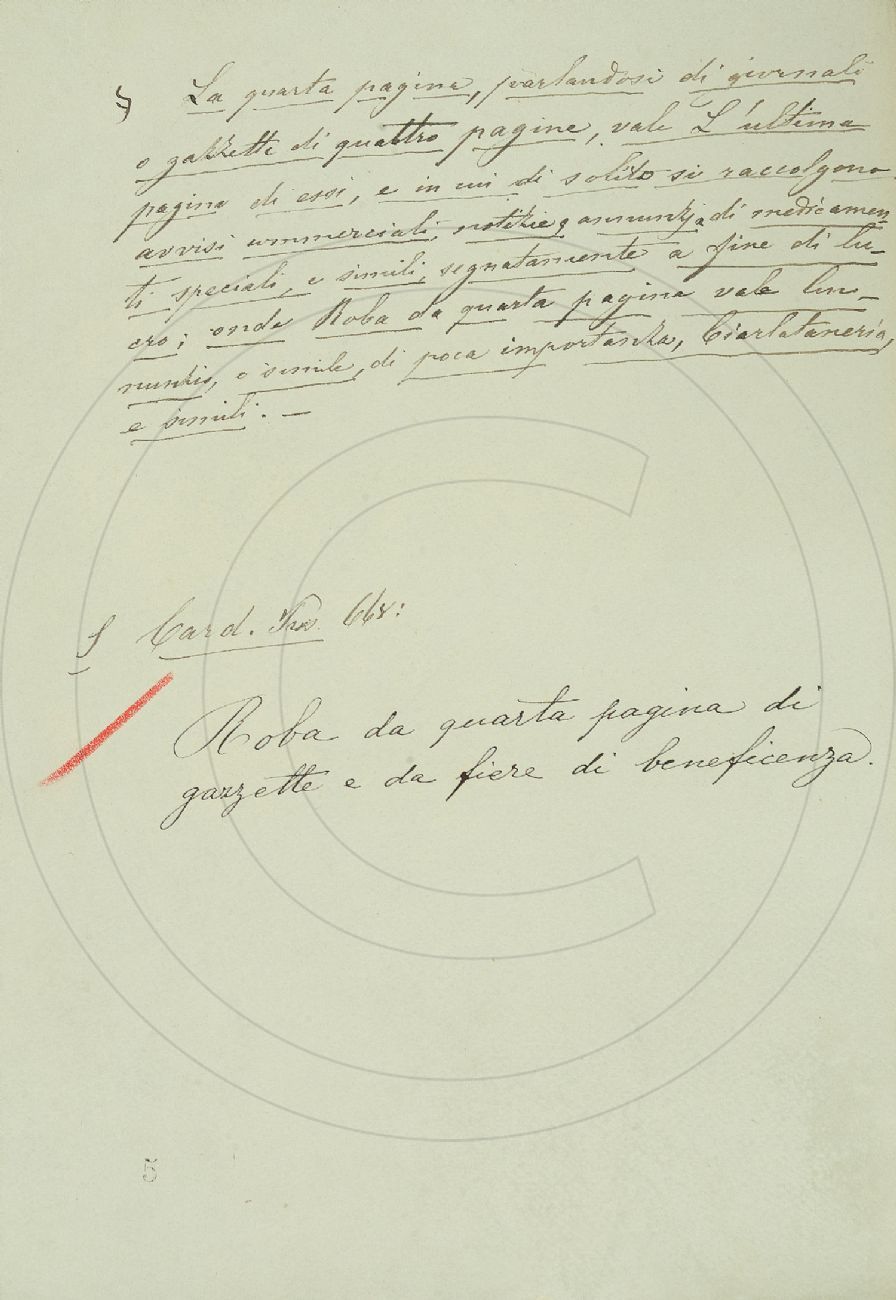 § La quarta pagina, parlandosi di giornali
o gazzette di quattro pagine, vale L'ultima
pagina di essi, e in cui di solito si raccolgono
avvisi commerciali, notizie, annunzj di medicamen-
ti speciali, e simili, segnatamente a fine di lu-
cro; onde Roba da quarta pagina vale
nunzio, o simile, di poca importanza, Ciarlataneria,
e simili. —
§ Card. 668:
Roba da quarta pagina di
gazzette e da fiere di beneficenza.
5